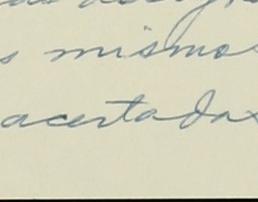 s mismo
acertadas